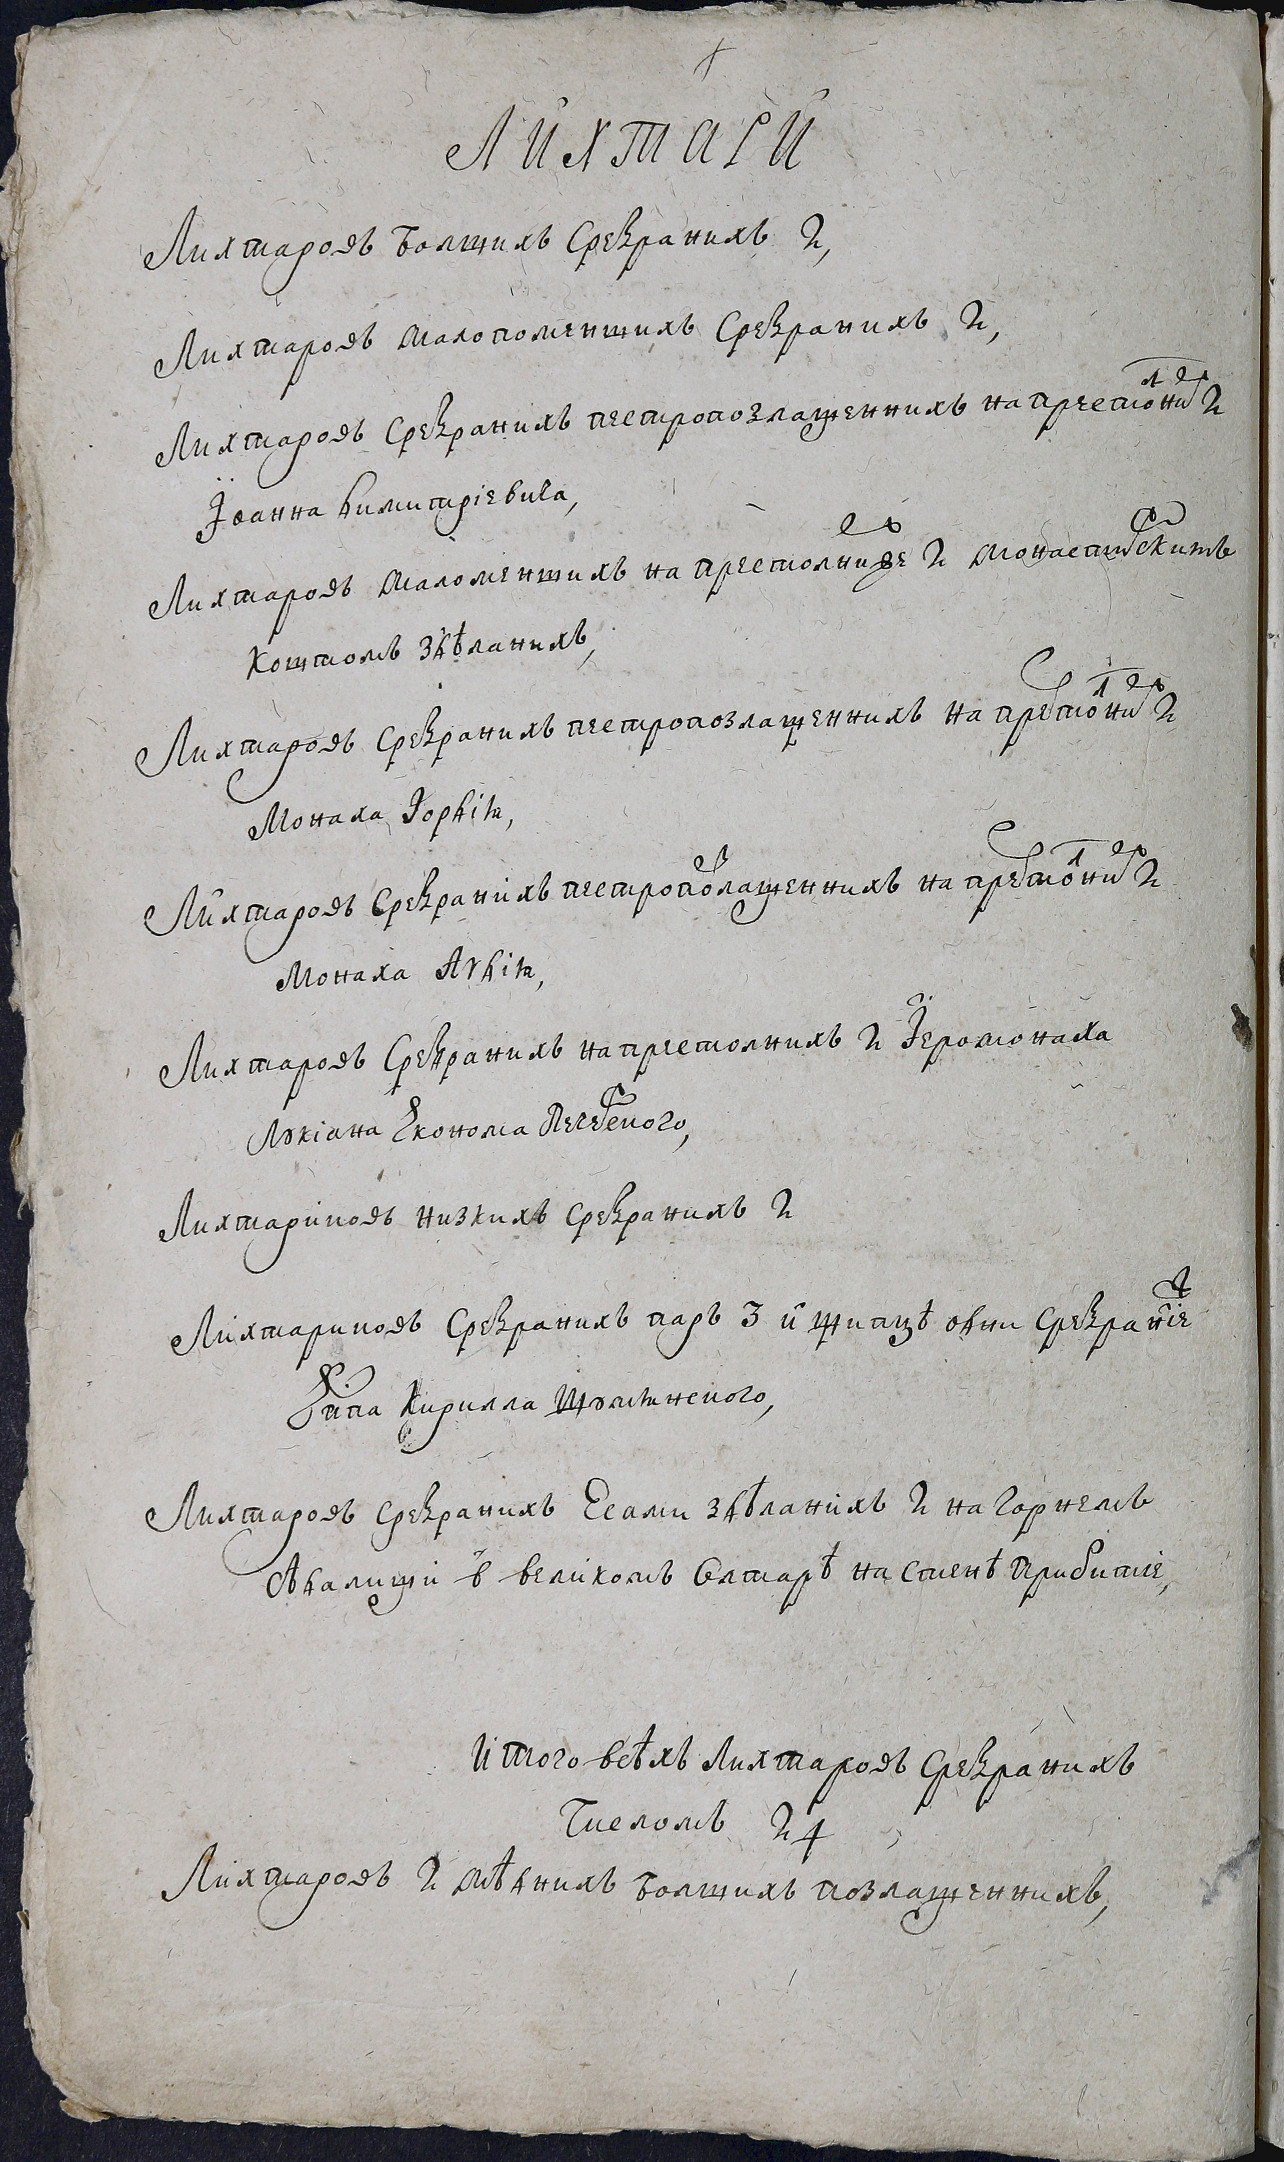 ЛИХТАРИ
Лихтаровъ болшихъ сребранихъ 2,
Лихтаровъ малопоменшихъ сребранихъ 2,
Лихтаровъ сребранихъ пестропозлащеннихъ на престолнихъ 2
Їоанна Димитріевича,
Лихтаровъ маломеншихъ на престолних же 2 монастирскимъ
коштомъ здѣланихъ,
Лихтаровъ сребранихъ пестропозлащеннихъ на престолних 2
Монаха Іовдіѧ,
Лихтаровъ сребранихъ пестропозлащеннихъ на престолних 2
Монаха Авдіѧ,
Лихтаровъ сребранихъ на престолнихъ 2 Їеромонаха
Лꙋкіана Економа Печерского,
Лихтариковъ низкихъ сребранихъ 2
Лихтариковъ сребранихъ паръ 3 и щипцѣ одни сребранніе
Еппа Кирилла Шꙋмлѧнского,
Лихтаровъ сребранихъ Есами здѣланихъ 2 на Горнемъ
сѣдалищи в великомъ Олтарѣ на стенѣ прибитіе,
Итого всѣхъ Лихтаровъ сребранихъ
Числомъ 24
Лихтаровъ 2 мѣднихъ болшихъ позлащеннихъ,